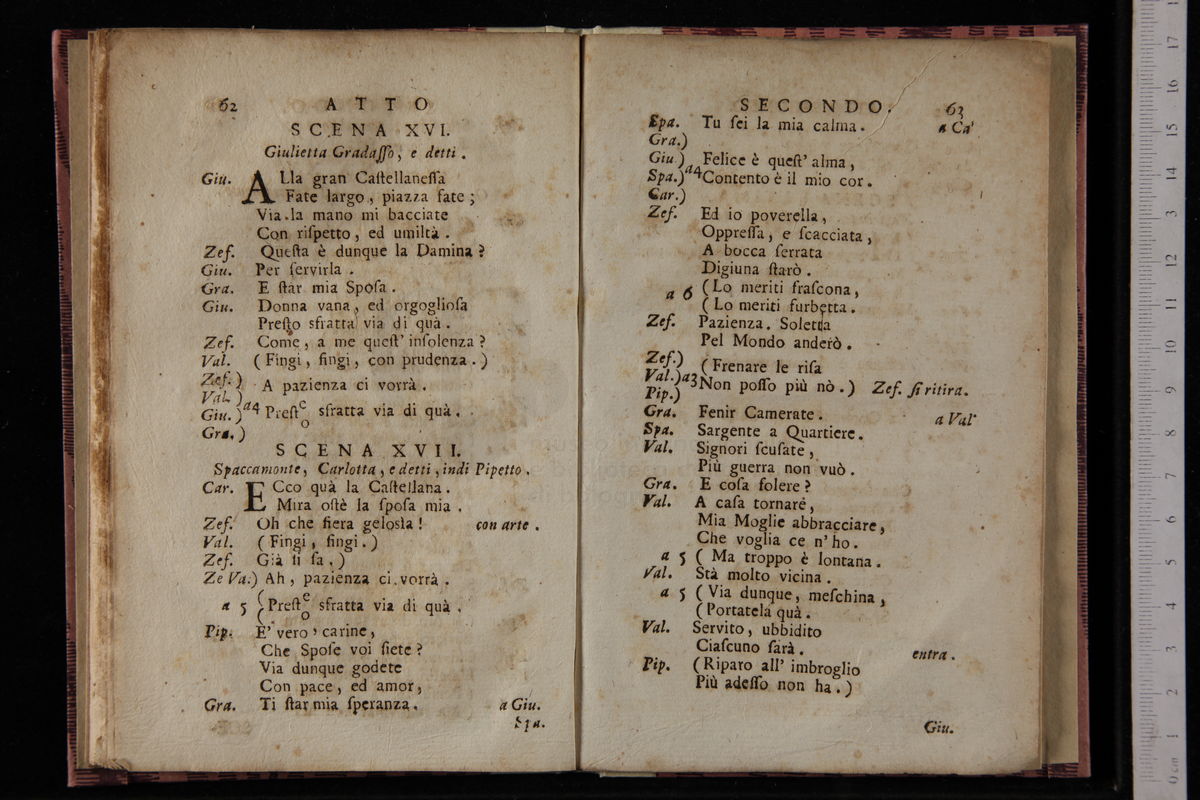 62 ATTO
SCENA XVI.
Giulietta Gradaſſo, e detti.
Giu. ALla gran Caſtellaneſſa
Fate largo, piazza fate;
Via la mano mi bacciate
Con riſpetto, ed umiltà.
Zef. Queſta è dunque la Damina?
Giu. Per ſervirla.
Gra. E ſtar mia Spoſa.
Giu. Donna vana, ed orgoglioſa
Preſto sfratta via di quà.
Zef. Come, a me queſt' inſolenza?
Val. (Fingi, fingi, con prudenza.)
Zef.)
Val.) A pazienza ci vorrà.
Giu.) a4 Preſt e o sfratta via di quà.
Gra.)
SCENA XVII.
Spaccamonte, Carlotta, e detti, indi Pipetto.
Car. ECco quà la Caſtellana.
Mira oſtè la ſpoſa mia.
Zef. Oh che fiera gelosìa! con arte.
Val. (Fingi, fingi.)
Zef. Già ſi ſa.)
Ze Va.) Ah, pazienza ci vorrà.
a 5 (Preſt e o sfratta via di quà.
Pip. E' vero, carine,
Che Spoſe voi ſiete?
Via dunque godete
Con pace, ed amor,
Gra. Ti ſtar mia ſperanza. a Giu.
Spa.
SECONDO. 63
Spa. Tu ſei la mia calma. a Ca'
Gra.)
Giu.) Felice è queſt' alma,
Spa.) a4 Contento è il mio cor.
Car.)
Zef. Ed io poverella,
Oppreſſa, e ſcacciata,
A bocca ſerrata
Digiuna ſtarò.
a 6 (Lo meriti fraſcona,
(Lo meriti furbetta.
Zef. Pazienza. Soletta
Pel Mondo anderò.
Zef.) (Frenare le riſa
Val.) a3 Non poſſo più nò.) Zef. ſi ritira.
Pip.)
Gra. Fenir Camerate. a Val'
Spa. Sargente a Quartiere.
Val. Signori ſcuſate,
Più guerra non vuò.
Gra. E coſa folere?
Val. A caſa tornare,
Mia Moglie abbracciare,
Che voglia ce n' ho.
a 5 (Ma troppo è lontana.
Val. Stà molto vicina.
a 5 (Via dunque, meſchina,
(Portatela quà.
Val. Servito, ubbidito
Ciaſcuno ſarà. entra.
Pip. (Riparo all' imbroglio
Più adeſſo non ha.)
Giu.